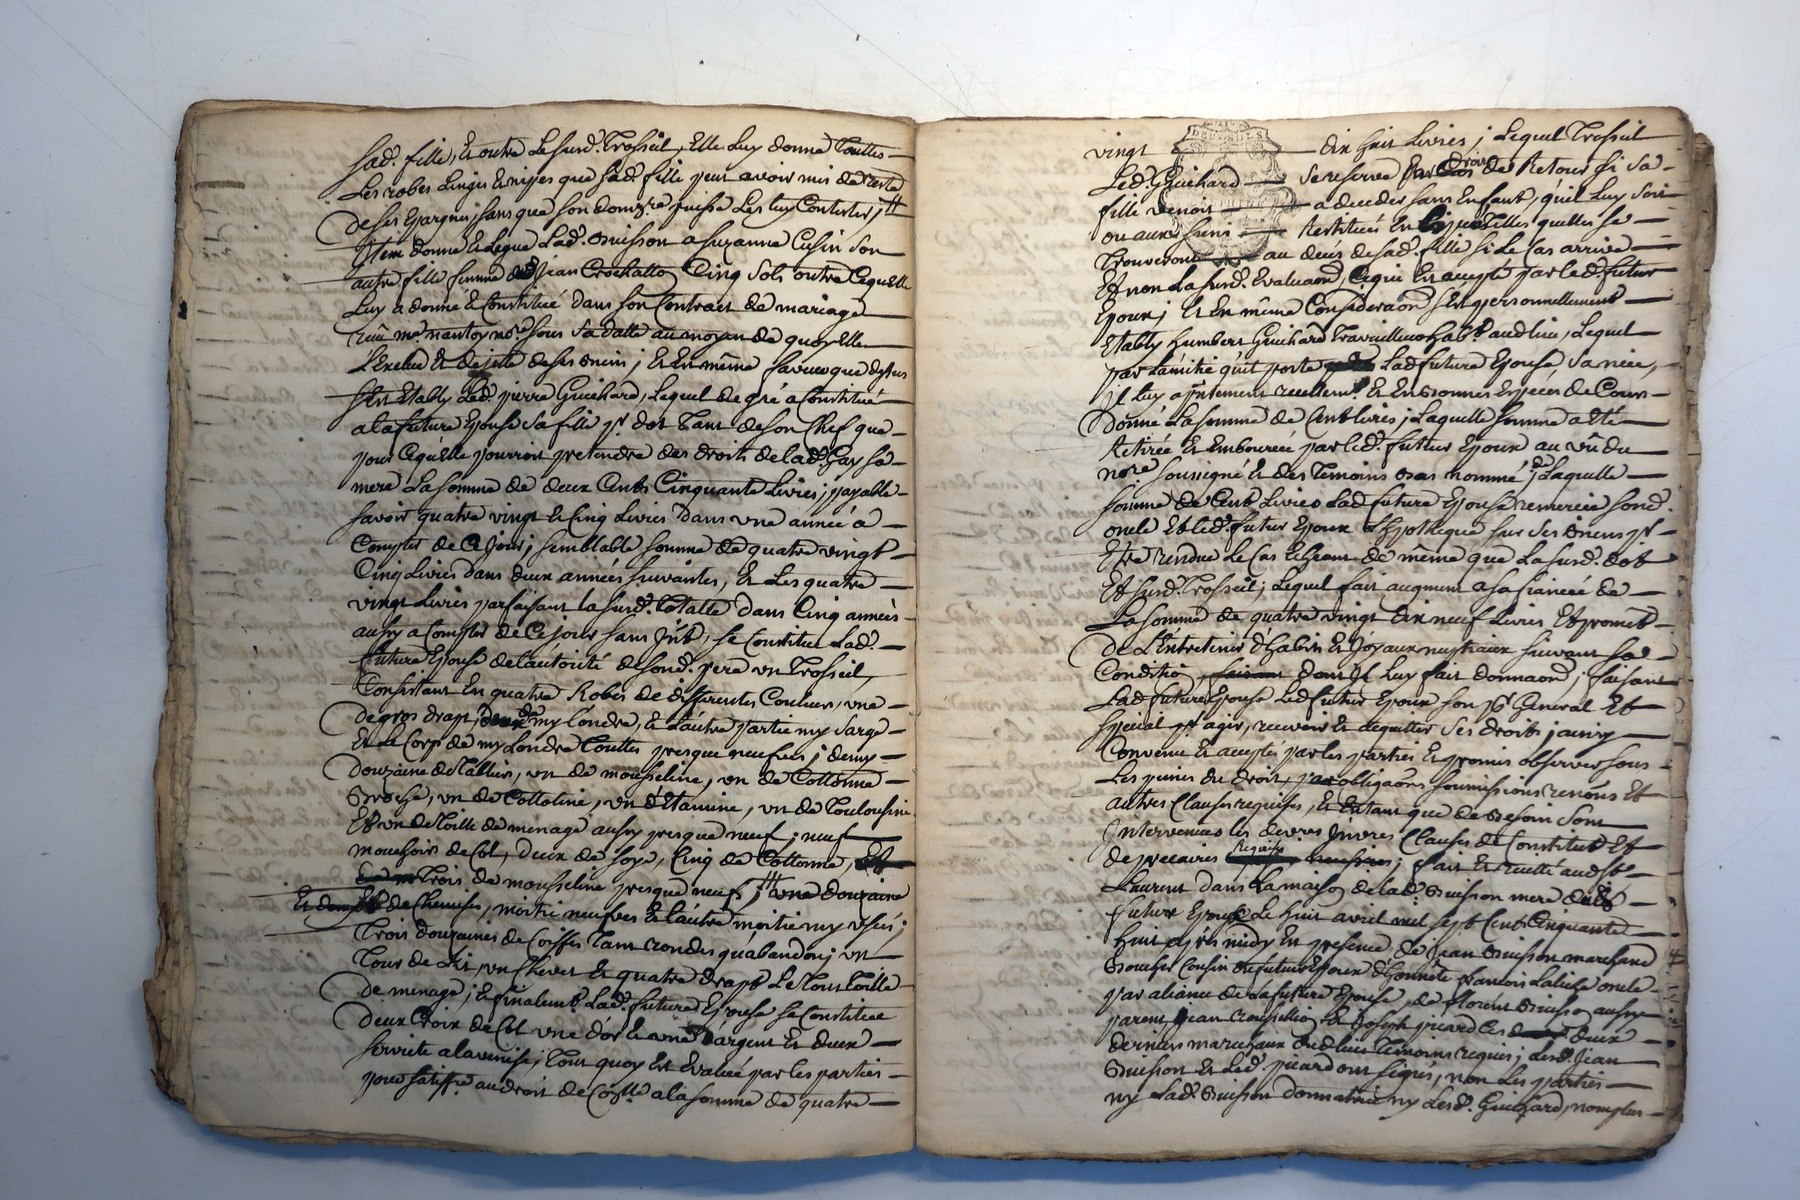 sad. fille, Et outre Le surd. Trosseil, Elle Luy donne Touttes
Les robes Linges Et nipes que sad. fille peut avoir mis de reste
de ses Epargnes, sans que son dom.re puisse Les luy Contester;
Item donne Et Legue Lad. Buisson a Suzanne Cusin son
autre fille femme de Jean Crochatton Cinq sols outre Ce qu'Elle
Luy a donné Et Constitué dans son Contract de mariage
reçu me. mantoy no.re sous sa datte au moyen de quoy Elle
L'Exclud Et dejette de ses Biens; Et En même
s'Est Etably Led. pierre Guichard, Lequel de gré a Constitué
a la future Epouse sa fille pr. dot Tant de son Chef que
pour Ce qu'Elle pourroit pretendre des droits de lad. Gay sa
mere La somme de deux Cents Cinquante Livres; payable
savoir quatre vingt Et Cinq Livres dans une année à
Compter de Ce Jour; semblable somme de quatre vingt
Cinq Livres dans deux années suivantes, Et Les quatre
vingt Livres parfaisant la surd. Totalle dans Cinq années
aussy a Compter de Ce jour sans Jnt.; se Constitue Lad.
future Epouse de l'autorité de sond. pere un Trosseil,
Consistant En quatre Robes de differentes Couleurs, une
de gros drapt, de my londre, Et L'autre partie my sarge
Et Le Corp de my Londre Touttes presque neufves; demy
douzaine de Tabliers, un de mousseline, un de Cottonne
Broché, un de Cottoline, un d'Etamine, un de Toulousine
Et un de Toille de menage aussy presque neuf; neuf
mouchoirs de Col, deux de soye, Cinq de Cottonne,
Trois de mousseline presque neufs; une douzaine
de Chemises, moitié neufves Et l'autre moitié my usées;
Trois douzaines de Coiffes Tant rondes qu'abandon; un
Tour de Lit, un Chevet Et quatre drapts Le Tout Toille
de menage; Et finalemt. Lad. future Epouse se Constitue
deux Croix de Col une d'or Et une d'argent Et deux
serviete a la venise; Tout quoy Est Evalué par Les parties
pour satisffre. au droit de Co.lle a la somme de quatre
vingt dix huit Livres; Lequel Trosseil
DEUX SOLS
Led. Guichard se reserve droit de Retour si sa
fille venoit a deceder sans Enfant, qu'il Luy soit
ou aux siens Restitués En Espece Telles quelles se
Trouveront au decés de sad. fille si Le Cas arrive
Et non La surd. Evaluaon, Ce qui Est accepté par Led. futur
Epoux; Et En même Consideraon s'Est personnellement
Etably humbert Guichard Travailleur hab.t aud. lieu, Lequel
par L'amitié qu'il porte Lad. future Epouse, sa niece,
il Luy a presentement reellemt. Et En Bonnes Especes de Cours
donné La somme de Cent Livres; Laquelle somme a Eté
Retirée Et Embourcée par led. futur Epoux au vû du
no.re soussigné Et des Temoins Bas nommé; de Laquelle
somme de Cent Livres Lad. future Epouse remercie sond.
oncle Et led. futur Epoux L'hypotheque sur ses Biens pr.
Etre rendue Le Cas Echeant de même que La surd. dot
Et surd. Trosseil; Lequel fait augment a sa fiancée de
La somme de quatre vingt dix neuf Livres Et promet
de L'Entretenir d'habits Et Joyaux nuptiaux suivant sa
Condition, dont Jl Luy fait donnaon; faisant
Lad. future Epouse Led. futur Epoux son pr. General Et
special pr. agir, recevoir Et acquitter ses droits; ainsy
Convenu Et accepté par les parties Et promis observer sous
Les peines du droit, par obligaons soumissions renons Et
autres Clauses requises, Et En tant que de Besoin sont
Intervenues les Clauses de Constitut Et
de precaires Requises; fait Et recitté aud. St.
Laurent dans La maison de lad. Buisson mere dud.
futur Epoux Le huit avril mil sept Cents Cinquante
huit après midy En presence de Jean Buisson marchand
Boucher Cousin du futur Epoux d'honnete francois Laliche oncle
par aliance de La future Epouse, de florent Buisson aussy
parent, Jean rousillion Et Joseph picard Ces deux
derniers marechaux dud. lieu Temoins requis; Lesd. Jean
Buisson Et Led. picard ont signés, non Les parties
ny Lad. Buisson donnatrice ny Lesd. Guichard, non plus